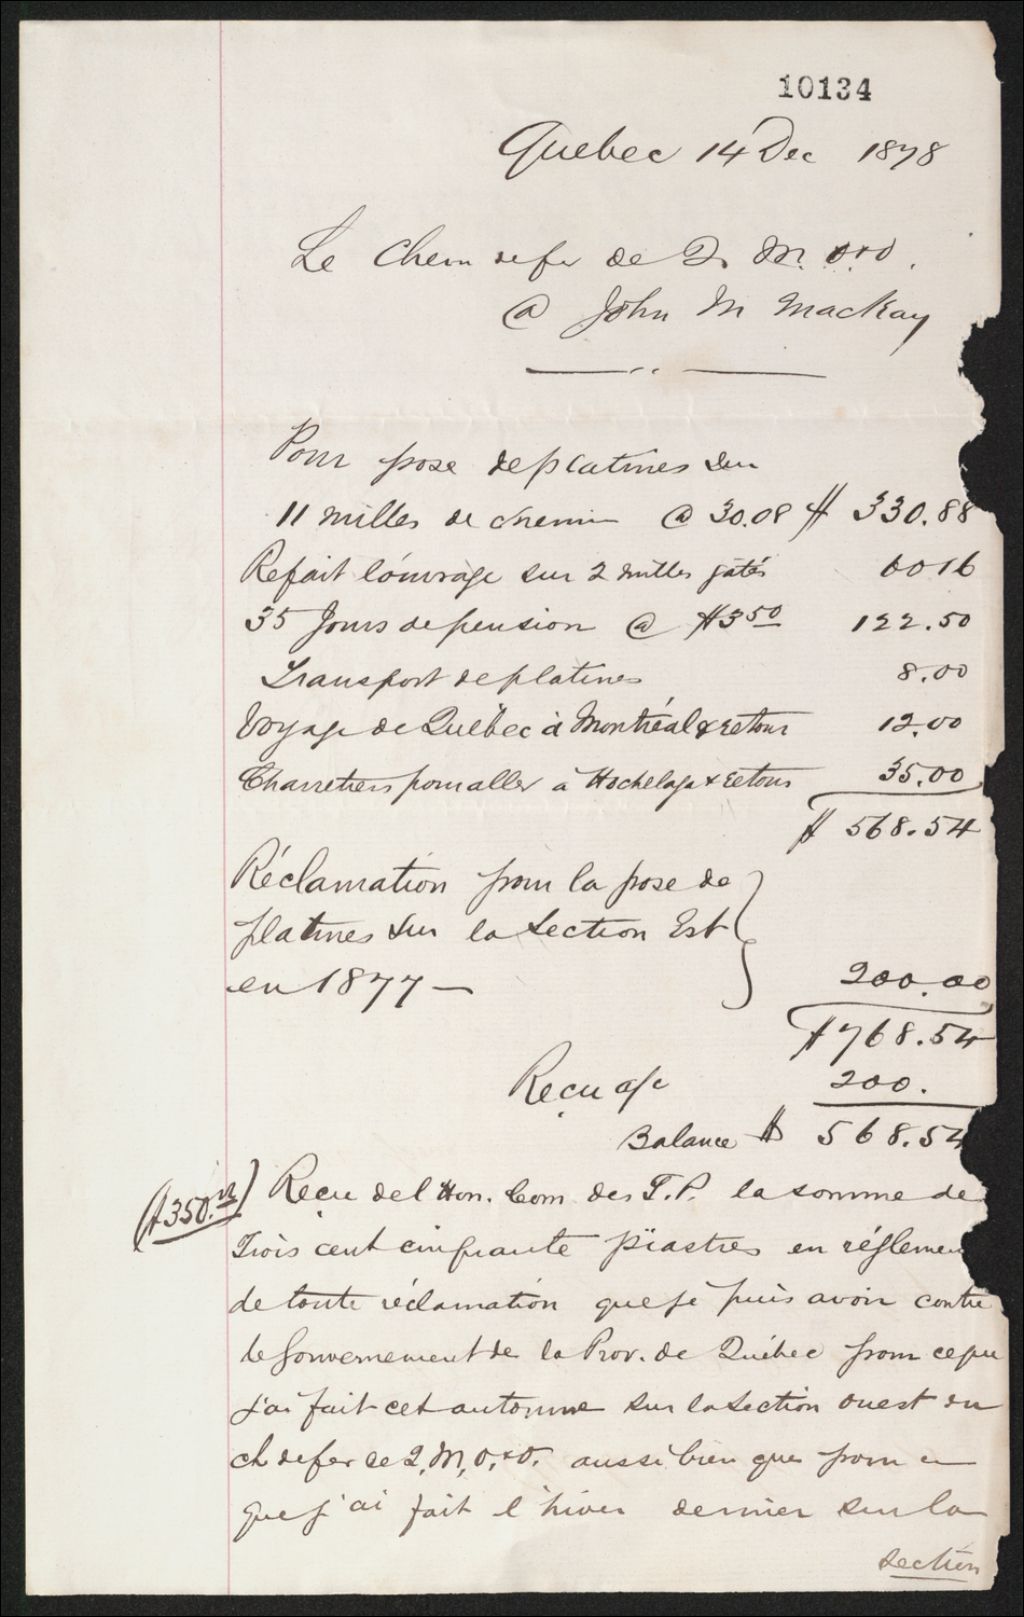 10134
Quebec 14 Dec 1878
Le Chem de fer de Q. M. O.&O.
@ John M MacKay
Pour pose de platines sur
11 milles de chemin @ 30.08 $ 330.88
Refait l'ouvrage sur 2 milles gatés 60 16
35 Jours de pension @ $3 50 122.50
Transport de platines 8.00
Voyage de Québec à Montréal & retour 12.00
Charretiers pour aller à Hochelaga & retour 35.00
$ 568.54
Réclamation pour la pose de
platines sur la section Est
en 1877 — 200.00
$768.54
Reçu a/c 200.
Balance $ 568.54
($350.) Reçu de l'Hon. Com. des T.P. la somme de
Trois cent cinquante piastres en réglemen
de toute réclamation que je puis avoir contre
le Gouvernement de la Prov. de Québec pour ce que
j'ai fait cet automne sur la section ouest du
ch de fer de Q, M, O, & O. aussi bien que pour ce
que j'ai fait l'hiver dernier sur la
section